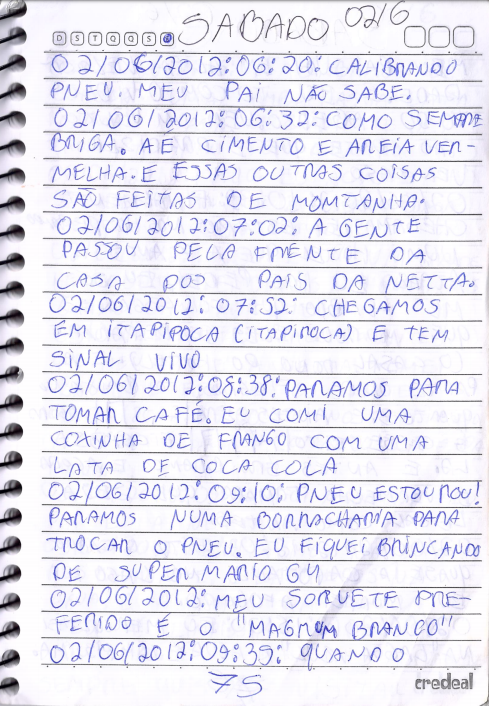 D S T Q Q S S SABADO 02/6
02/06/2012:06:20: CALIBRANDO
PNEU. MEU PAI NÃO SABE.
02/06/2012:06:32: COMO SEMPRE
BRIGA. ATÉ CIMENTO E AREIA VER-
MELHA. E ESSAS OUTRAS COISAS
SÃO FEITAS DE MOMTANHA.
02/06/2012:07:02: A GENTE
PASSOU A PELA FRENTE DA
CASA DOS PAIS DA NETTA.
02/06/2012:07:52: CHEGAMOS
EM ITAPIPOCA (ITAPIPOCA) E TEM
SINAL VIVO
02/06/2012:08:38: PARAMOS PARA
TOMAR CAFÉ. EU COMI UMA
COXINHA DE FRANGO COM UMA
LATA DE COCA COLA
02/06/2012:09:10: PNEU ESTOUROU!
PARAMOS NUMA BORRACHARIA PARA
TROCAR O PNEU. EU FIQUEI BRINCANDO
DE SUPER MARIO 64
02/06/2012: MEU SORVETE PRE-
FERIDO É O "MAGNUM BRANCO"
02/06/2012:09:39: QUANDO O
75
credeal